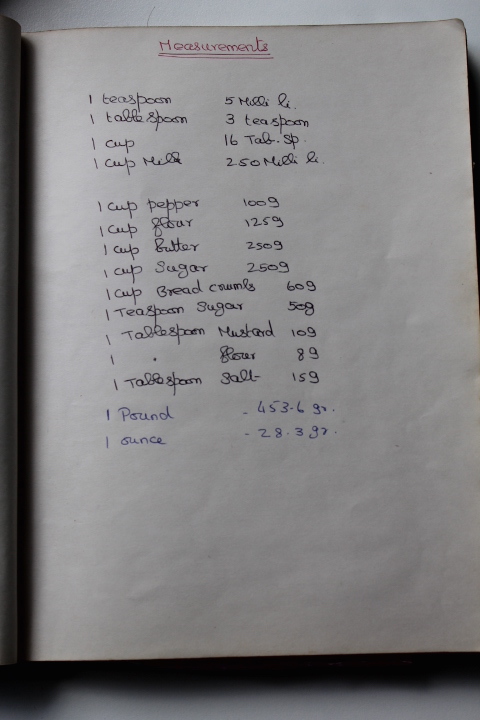 Measurements
1 teaspoon 5 Milli li.
1 tablespoon 3 teaspoon
1 cup 16 Tab. Sp.
1 cup Milk 250 Milli li.
1 cup pepper 100g
1 cup flour 125g
1 cup Butter 250g
1 cup Sugar 250g
1 cup Bread crumbs 60g
1 Teaspoon Sugar 50g
1 Tablespoon Mustard 10g
1 " flour 8g
1 Tablespoon Salt 15g
1 Pound - 453.6 gr.
1 ounce - 28.3 gr.